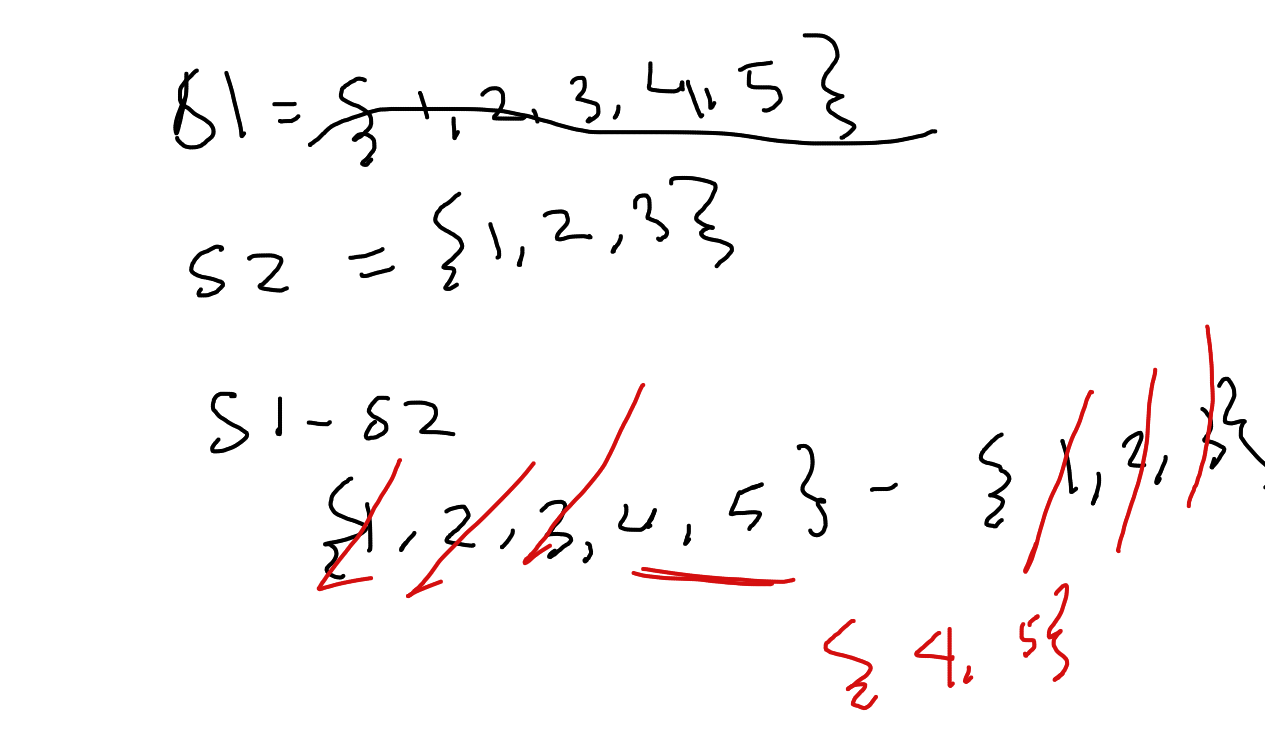 S1 = {1, 2, 3, 4, 5}
S2 = {1, 2, 3}
S1 - S2
{1, 2, 3, 4, 5} - {1, 2, 3}
{4, 5}